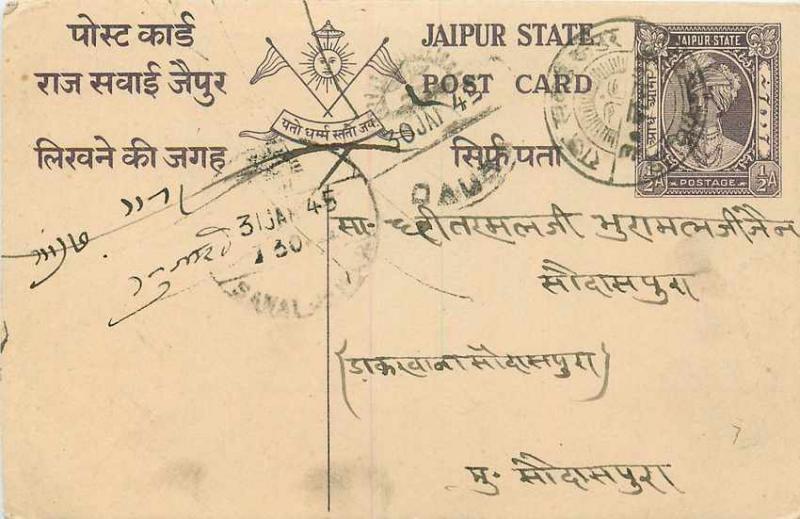 पोस्ट कार्ड
राज सवाई जैपुर
लिखने की जगह
यतो धर्म्म स्ततो जय
JAIPUR STATE
POST CARD
सिर्फ़ पता
JAIPUR STATE
आध आना
½A POSTAGE ½A
30 JAN 45
DAUSA
31 JAN 45
7 30
सा॰ छीतरमलजी भुरामलजी जैन
सौदासपुरा
(डाकखाना सौदासपुरा)
मु॰ सौदासपुरा